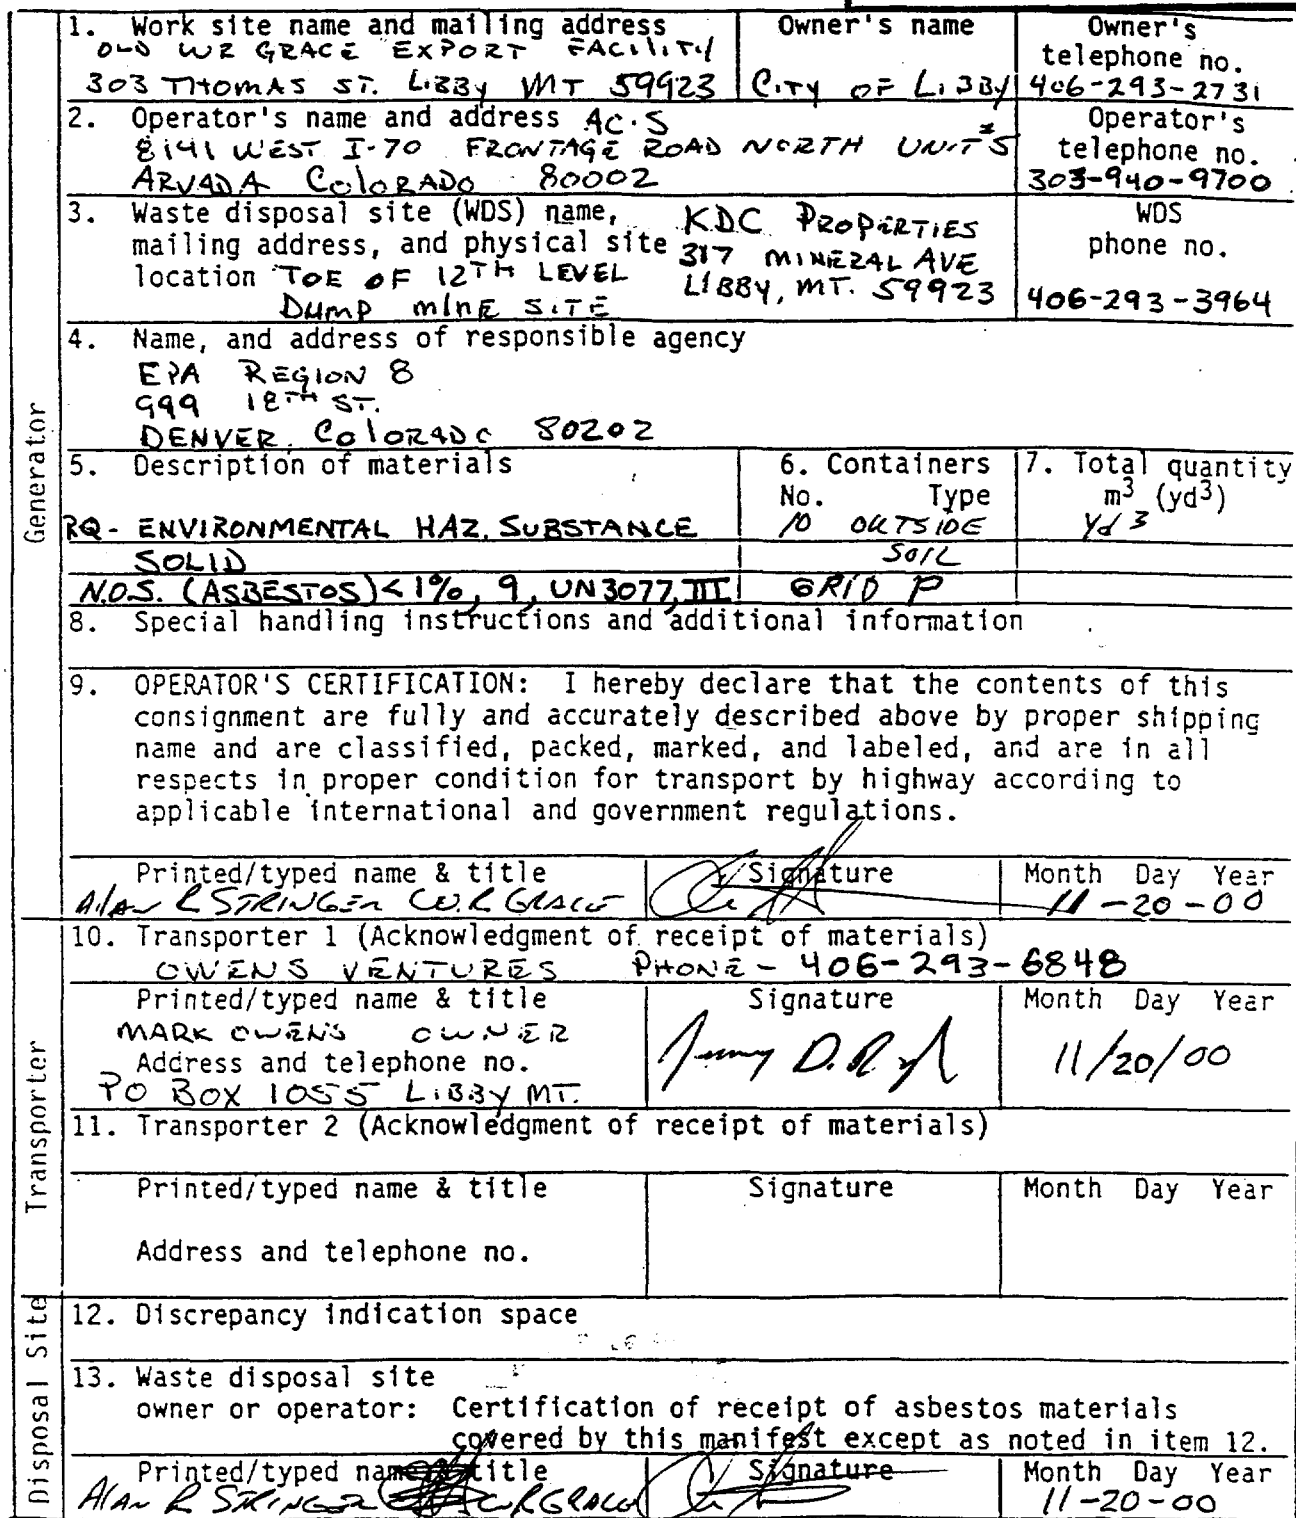 1. Work site name and mailing address
OLD WR GRACE EXPORT FACILITY
303 THOMAS ST. LIBBY MT 59923
Owner's name
CITY OF LIBBY
Owner's
telephone no.
406-293-2731
2. Operator's name and address AC.S
8141 WEST I-70 FRONTAGE ROAD NORTH UNIT #5
ARVADA COLORADO 80002
Operator's
telephone no.
303-940-9700
3. Waste disposal site (WDS) name,
mailing address, and physical site
location TOE OF 12TH LEVEL
DUMP MINE SITE
KDC PROPERTIES
317 MINERAL AVE
LIBBY, MT. 59923
WDS
phone no.
406-293-3964
4. Name, and address of responsible agency
EPA REGION 8
999 18TH ST.
DENVER, COLORADO 80202
Generator
5. Description of materials
RQ - ENVIRONMENTAL HAZ. SUBSTANCE
SOLID
N.O.S. (ASBESTOS) < 1%, 9, UN3077, III
6. Containers
No. Type
10 OUTSIDE
SOIL
GRID P
7. Total quantity
m3 (yd3)
Yd 3
8. Special handling instructions and additional information
9. OPERATOR'S CERTIFICATION: I hereby declare that the contents of this
consignment are fully and accurately described above by proper shipping
name and are classified, packed, marked, and labeled, and are in all
respects in proper condition for transport by highway according to
applicable international and government regulations.
Printed/typed name & title
Alan R STRINGER W.R GRACE
Signature
Month Day Year
11-20-00
Transporter
10. Transporter 1 (Acknowledgment of receipt of materials)
OWENS VENTURES PHONE - 406-293-6848
Printed/typed name & title
MARK OWENS OWNER
Address and telephone no.
PO BOX 1055 LIBBY MT.
Signature
Month Day Year
11/20/00
11. Transporter 2 (Acknowledgment of receipt of materials)
Printed/typed name & title
Signature
Month Day Year
Address and telephone no.
Disposal Site
12. Discrepancy indication space
13. Waste disposal site
owner or operator: Certification of receipt of asbestos materials
covered by this manifest except as noted in item 12.
Printed/typed name & title
Alan R STRINGER WRGRACE
Signature
Month Day Year
11-20-00